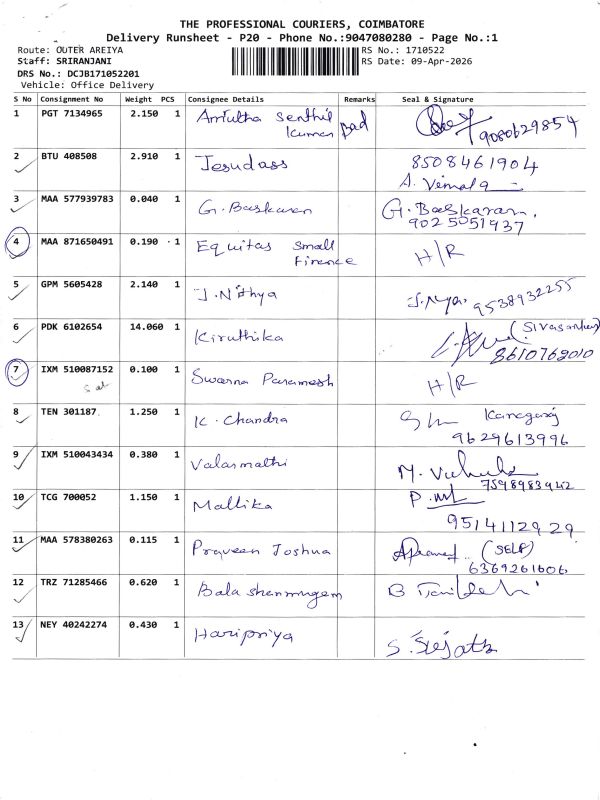 THE PROFESSIONAL COURIERS, COIMBATORE
Delivery Runsheet - P20 - Phone No.:9047080280 - Page No.:1
Route: OUTER AREIYA
RS No.: 1710522
Staff: SRIRANJANI
RS Date: 09-Apr-2026
DRS No.: DCJB171052201
Vehicle: Office Delivery
S No Consignment No Weight PCS Consignee Details Remarks Seal & Signature
1 PGT 7134965 2.150 1 Amrutha Senthil
Kumar Bad 9080629854
2 BTU 408508 2.910 1 Jesudass 8508461904
A. Vimala
3 MAA 577939783 0.040 1 G. Baskaran G. Baskaran,
9025051937
4 MAA 871650491 0.190 1 Equitas Small H/R
Finance
5 GPM 5605428 2.140 1 J. Nithya 9538932255
6 PDK 6102654 14.060 1 Kiruthika
8610762010
7 IXM 510087152 0.100 1 Swarna Paramesh H/R
8 TEN 301187 1.250 1 K. Chandra Kanagaraj
9629613996
9 IXM 510043434 0.380 1 Valarmathi
7598983942
10 TCG 700052 1.150 1 Mallika
9514112929
11 MAA 578380263 0.115 1 Praveen Joshua (SELF)
6369261606
12 TRZ 71285466 0.620 1 Bala Shanmugam
13 NEY 40242274 0.430 1 Haripriya